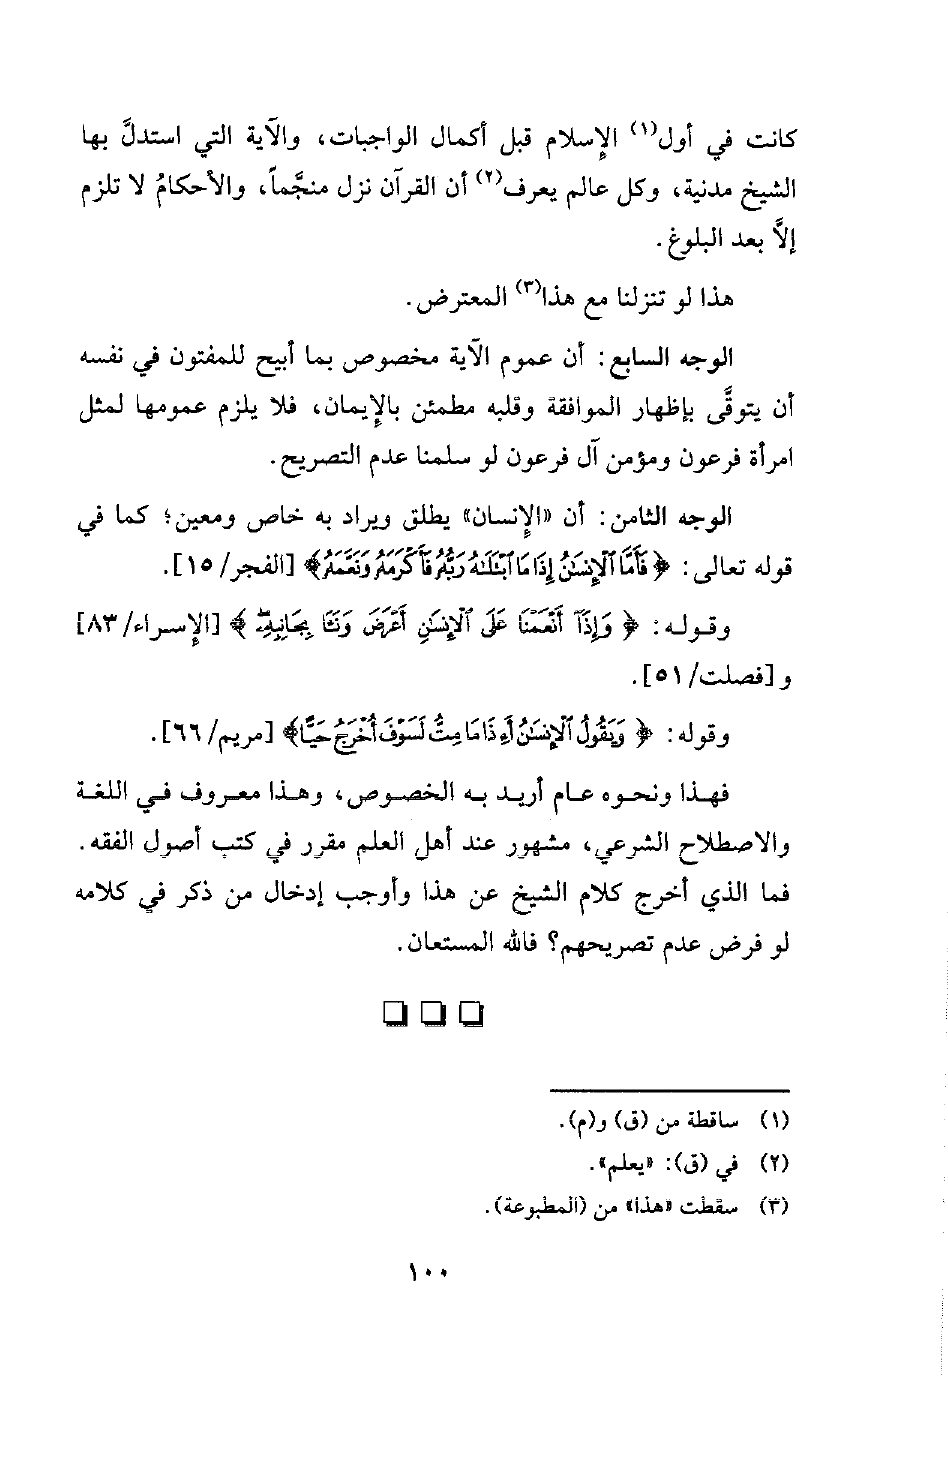 كانت في أول(١) الإسلام قبل أكمال الواجبات، والآية التي استدلَّ بها
الشيخ مدنية، وكل عالم يعرف(٢) أن القرآن نزل منجَّماً، والأحكامُ لا تلزم
إلاَّ بعد البلوغ.
هذا لو تنزلنا مع هذا(٣) المعترض.
الوجه السابع: أن عموم الآية مخصوص بما أبيح للمفتون في نفسه
أن يتوقَّى بإظهار الموافقة وقلبه مطمئن بالإيمان، فلا يلزم عمومها لمثل
امرأة فرعون ومؤمن آل فرعون لو سلمنا عدم التصريح.
الوجه الثامن: أن «الإنسان» يطلق ويراد به خاص ومعين؛ كما في
قوله تعالى: ﴿فَأَمَّا ٱلْإِنسَٰنُ إِذَا مَا ٱبْتَلَىٰهُ رَبُّهُۥ فَأَكْرَمَهُۥ وَنَعَّمَهُۥ﴾ [الفجر/ ١٥].
وقوله: ﴿وَإِذَآ أَنْعَمْنَا عَلَى ٱلْإِنسَٰنِ أَعْرَضَ وَنَـَٔا بِجَانِبِهِۦ﴾ [الإسراء/ ٨٣]
و [فصلت/ ٥١].
وقوله: ﴿وَيَقُولُ ٱلْإِنسَٰنُ أَءِذَا مَا مِتُّ لَسَوْفَ أُخْرَجُ حَيًّا﴾ [مريم/ ٦٦].
فهذا ونحوه عام أريد به الخصوص، وهذا معروف في اللغة
والاصطلاح الشرعي، مشهور عند أهل العلم مقرر في كتب أصول الفقه.
فما الذي أخرج كلام الشيخ عن هذا وأوجب إدخال من ذكر في كلامه
لو فرض عدم تصريحهم؟ فالله المستعان.
(١) ساقطة من (ق) و(م).
(٢) في (ق): «يعلم».
(٣) سقطت «هذا» من (المطبوعة).
١٠٠